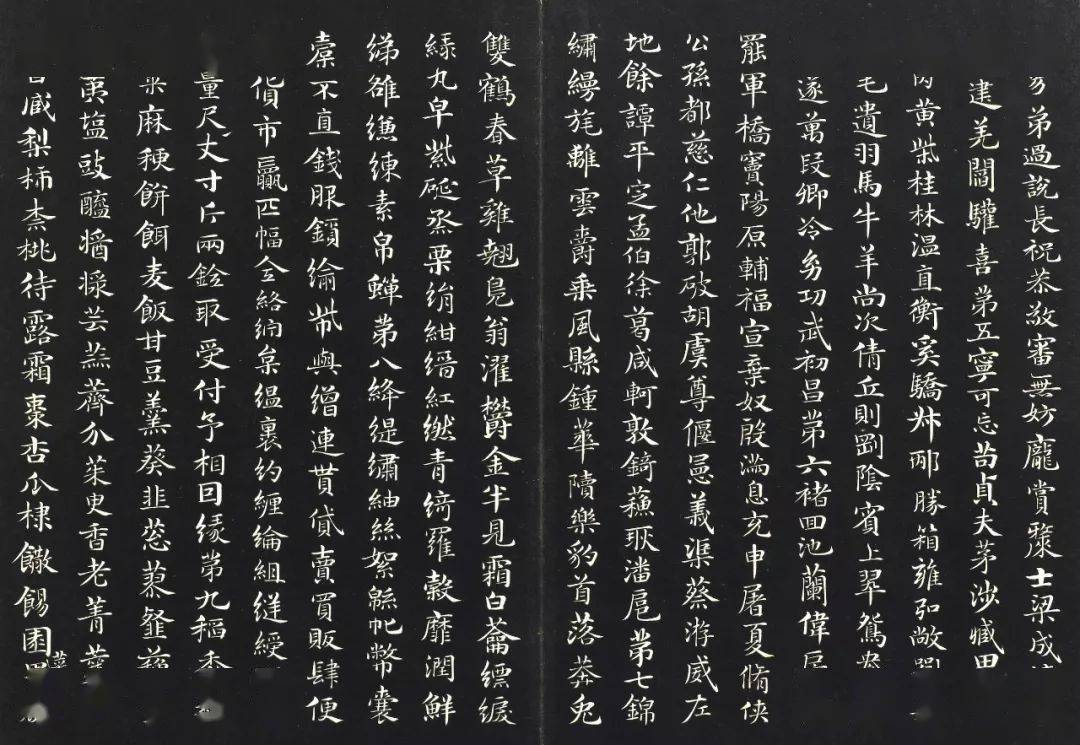 弟過說長祝恭敬審無妨龐賞㯃士梁成
建羌閻驩喜第五寧可忘苟貞夫茅涉臧田
黃柴桂林温直衡奚驕叔邴勝箱雍弘敞劉
毛遺羽馬牛羊尚次倩丘則剛陰賓上翠鴛鴦
遂萬段卿冷幼功武初昌第六褚回池蘭偉房
罷軍橋竇陽原輔福宣棄奴殷滿息充申屠夏脩俠
公孫都慈仁他郭破胡虞尊偃憲義渠蔡游威左
地餘譚平定孟伯徐葛咸軻敦錡蘇耿潘扈第七錦
繡縵旄離雲爵乘風縣鍾華隤樂豹首落莽兔
雙鶴春草雞翹鳧翁濯欝金半見霜白䈝縹綟
緑丸皁紫硟烝栗絹紺縉紅繎青綺羅縠靡潤鮮
綈雒縑練素帛蟬第八絳緹繡紬絲絮緜帊幣囊
橐不直錢服鎖緰帶與繒連貰貸賣買販肆便
貨市贏匹幅全絡紵枲縕裹約纏綸組縌綬
量尺丈寸斤兩銓取受付予相因緣第九稻黍
麻稉餅餌麦飯甘豆羹葵韭葱蓼韰蘇
塩豉醯醬漿芸蒜薺介茱臾香老菁蘘
臧梨柿柰桃待露霜棗杏瓜棣饊餳園